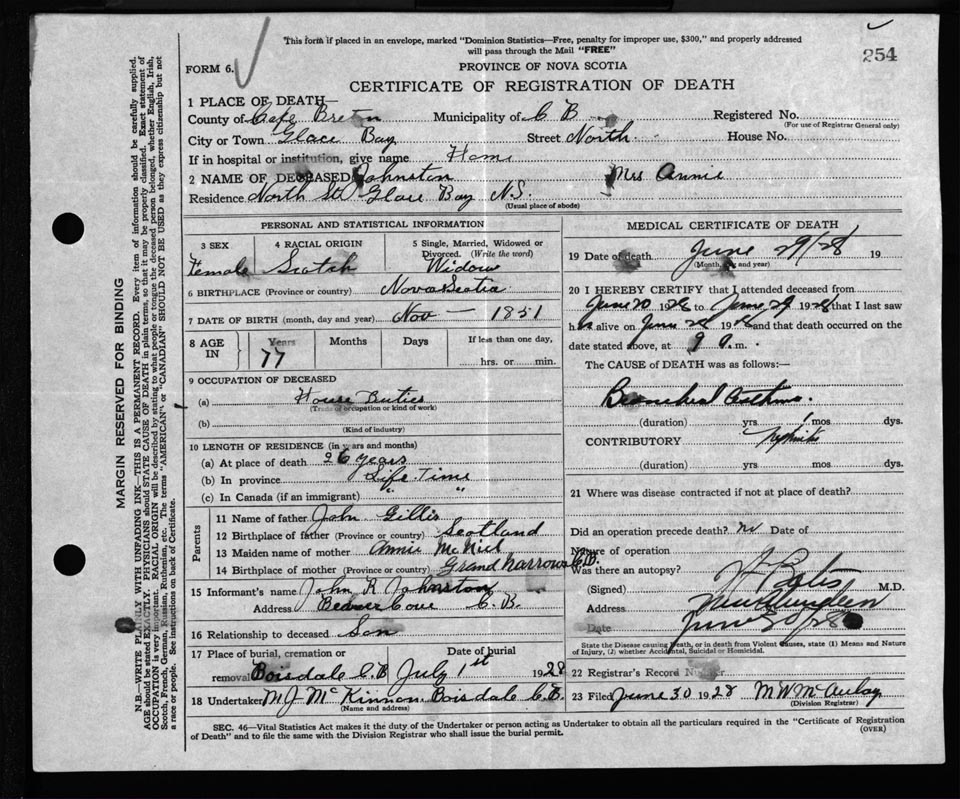 This form if placed in an envelope, marked "Dominion Statistics—Free, penalty for improper use, $300," and properly addressed
will pass through the Mail "FREE"
254
FORM 6.
PROVINCE OF NOVA SCOTIA
CERTIFICATE OF REGISTRATION OF DEATH
1 PLACE OF DEATH—
County of Cape Breton Municipality of C B Registered No.
(For use of Registrar General only)
City or Town Glace Bay Street North House No.
If in hospital or institution, give name Home
2 NAME OF DECEASED Johnston Mrs Annie
Residence North St Glace Bay N.S.
(Usual place of abode)
PERSONAL AND STATISTICAL INFORMATION
3 SEX 4 RACIAL ORIGIN 5 Single, Married, Widowed or
Divorced. (Write the word)
Female Scotch Widow
6 BIRTHPLACE (Province or country) Nova Scotia
7 DATE OF BIRTH (month, day and year) Nov — 1851
8 AGE IN Years Months Days If less than one day,
77 hrs. or min.
9 OCCUPATION OF DECEASED
(a) House Duties
(Trade, occupation or kind of work)
(b)
(Kind of industry)
10 LENGTH OF RESIDENCE (in years and months)
(a) At place of death 26 years
(b) In province Life Time
(c) In Canada (if an immigrant) " "
Parents
11 Name of father John Gillis
12 Birthplace of father (Province or country) Scotland
13 Maiden name of mother Annie McNiel
14 Birthplace of mother (Province or country) Grand Narrows C.B.
15 Informant's name John R Johnston
Address Beaver Cove C.B.
16 Relationship to deceased Son
17 Place of burial, cremation or Date of burial
removal Boisdale C.B July 1st 1928
18 Undertaker M J McKinnon Boisdale C.B.
(Name and address)
MEDICAL CERTIFICATE OF DEATH
19 Date of death June 29/28 19
(Month, day and year)
20 I HEREBY CERTIFY that I attended deceased from
June 20 1928 to June 29 1928 that I last saw
h alive on June 19 and that death occurred on
date stated above, at 9 m.
The CAUSE of DEATH was as follows:
Bronchial Asthma.
(duration) yrs mos dys.
CONTRIBUTORY Nephritis
(duration) yrs mos dys.
21 Where was disease contracted if not at place of death?
Did an operation precede death? no Date of
Nature of operation
Was there an autopsy?
(Signed) M.D.
Address New Aberdeen
Date June 30/28
State the Disease causing Death, or in death from Violent Causes, state (1) Means and Nature
of Injury, (2) whether Accidental, Suicidal or Homicidal.
22 Registrar's Record Number
23 Filed June 30 1928 M W McAulay
(Division Registrar)
SEC. 46—Vital Statistics Act makes it the duty of the Undertaker or person acting as Undertaker to obtain all the particulars required in the "Certificate of Registration
of Death" and to file the same with the Division Registrar who shall issue the burial permit.
(OVER)
MARGIN RESERVED FOR BINDING
N.B.—WRITE PLAINLY WITH UNFADING INK—THIS IS A PERMANENT RECORD. Every item of information should be carefully supplied.
AGE should be stated EXACTLY. PHYSICIANS should STATE CAUSE OF DEATH in plain terms, so that it may be properly classified. Exact statement of
OCCUPATION is very important. RACIAL ORIGIN will be described by stating to what people or tongue the deceased person belonged, whether English, Irish,
Scotch, French, German, Russian, Ruthenian, etc. The terms "AMERICAN" or "CANADIAN" SHOULD NOT BE USED as they express citizenship but not
a race or people. See instructions on back of Certificate.